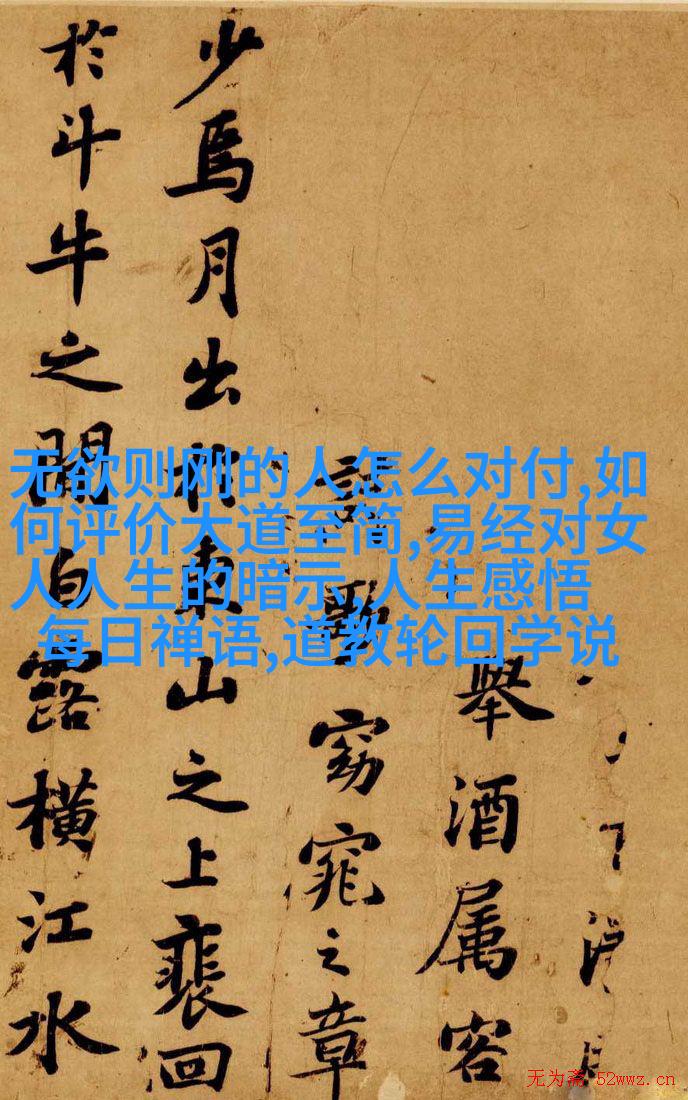 舉酒属客
歌窈窕之章
少焉月出於東山之上裴回
於斗牛之間白露橫江水
无欲则刚的人怎么对付,如
何评价大道至简,易经对女
人人生的暗示,人生感悟
每日禅语,道教轮回学说
无为斋 52wwz.cn